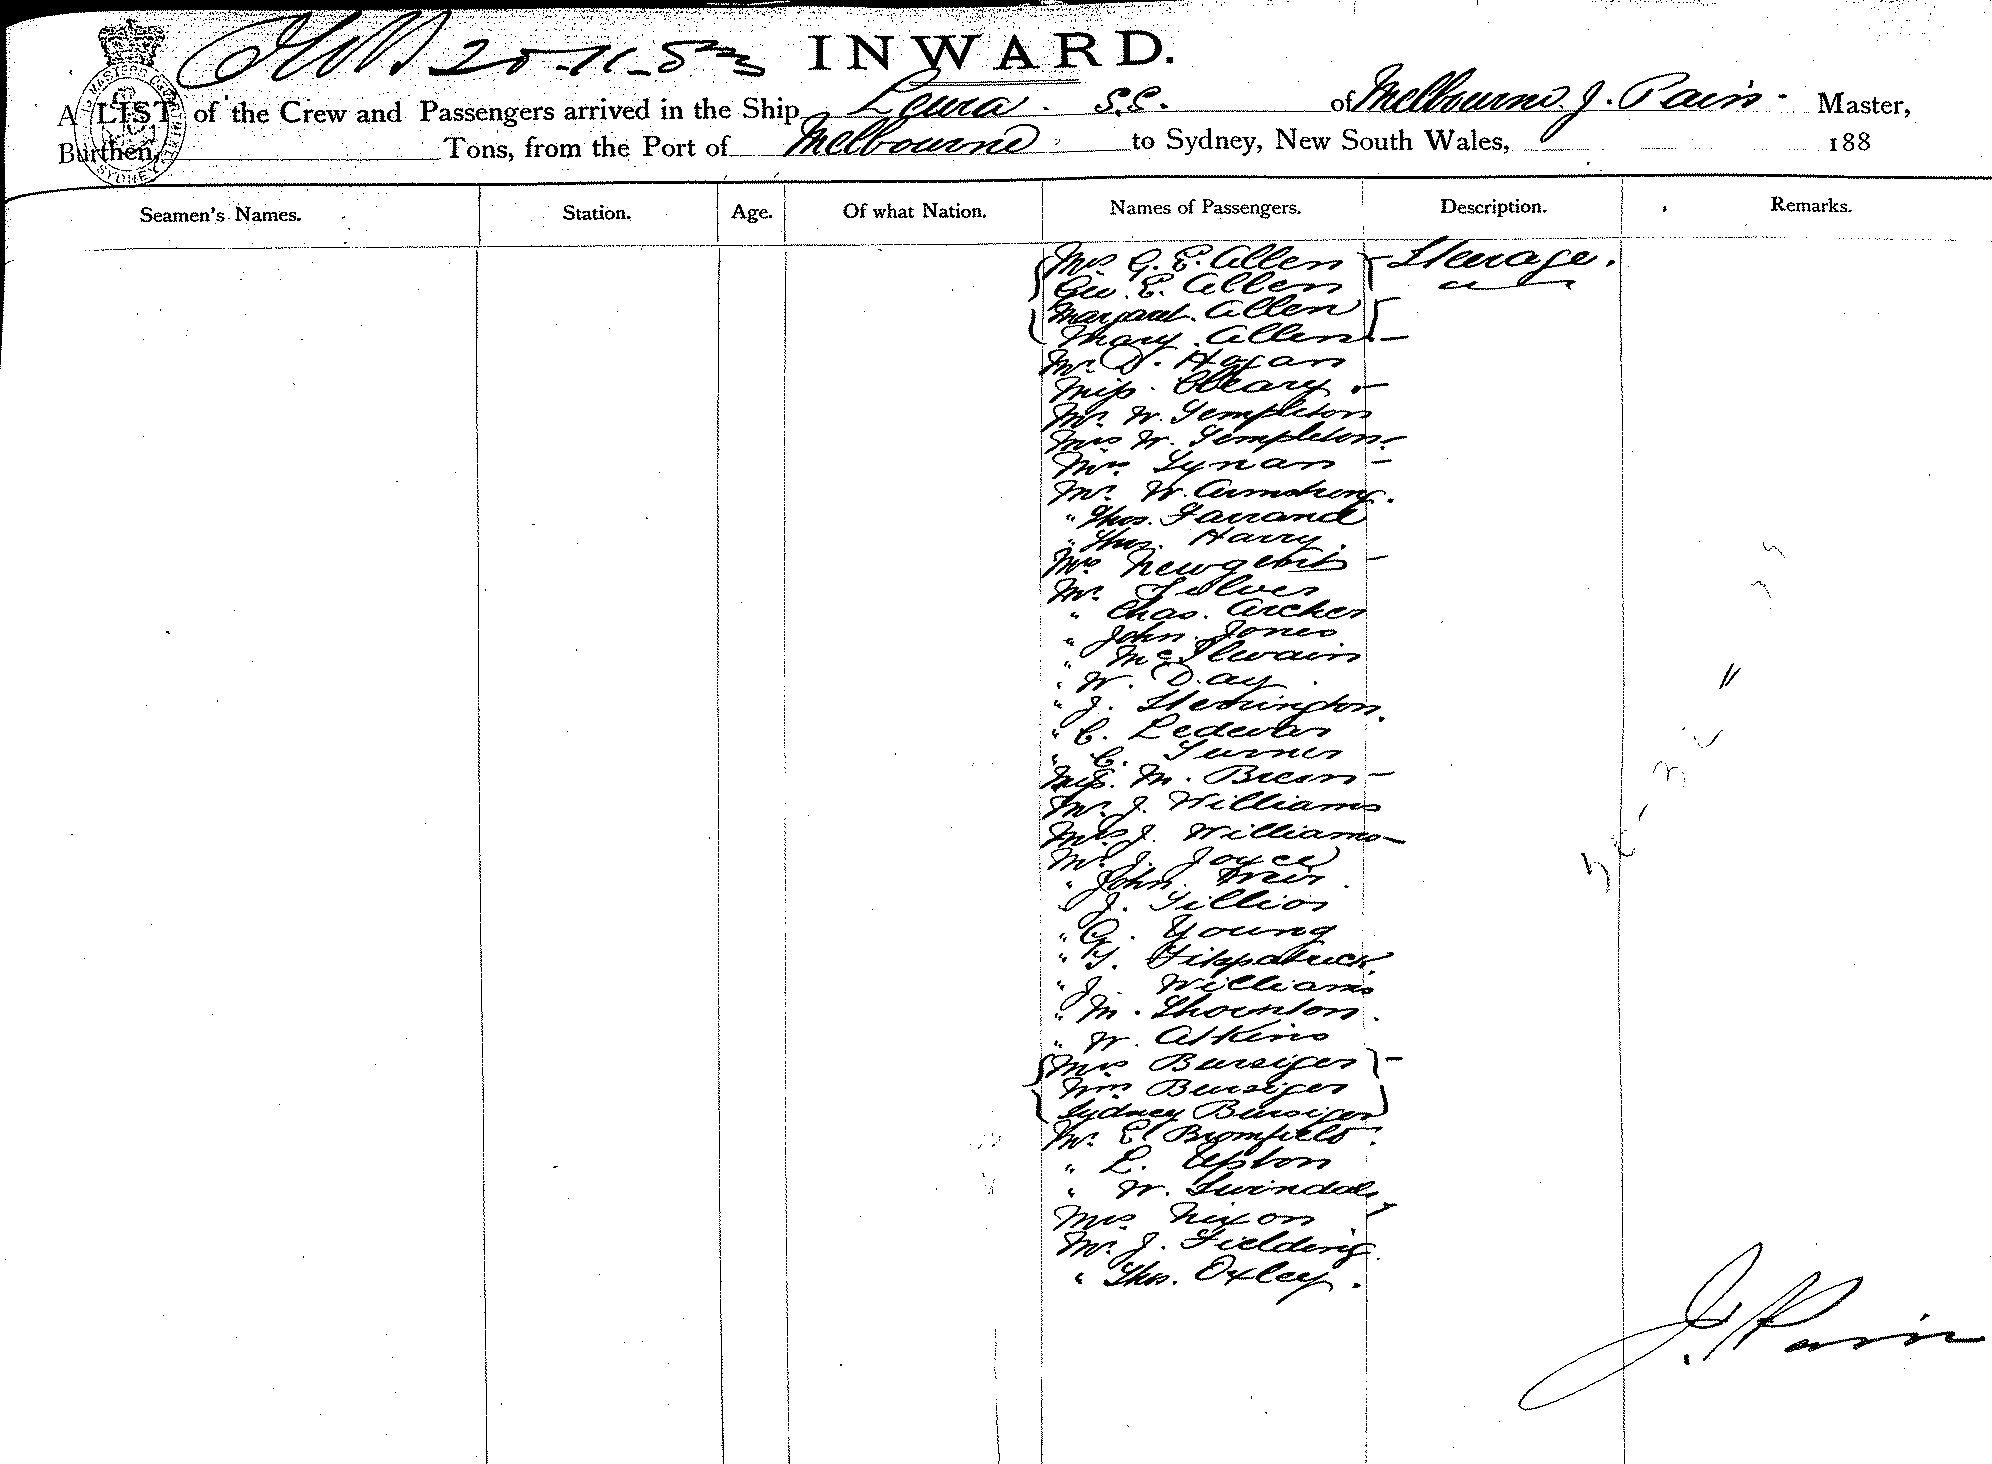 20-11-83 INWARD.
A LIST of the Crew and Passengers arrived in the Ship Leura. S.S. of Melbourne. J. Pain. Master,
Burthen, Tons, from the Port of Melbourne to Sydney, New South Wales, 188
Seamen's Names. Station. Age. Of what Nation. Names of Passengers. Description. Remarks.
Mrs G. E. Allen Steerage.
Geo. E. Allen
Margaret. Allen
Mary. Allen -
Mr. D. Hogan
Miss. Cleary -
Mr. W. Templeton
Mrs W. Templeton -
Mrs Lynan -
Mr. W. Armstrong.
" Thos. Farrand
" Thos. Harry.
Mrs -
Mr. Silver
" Chas. Archer
" John Jones
" McIlwain
" W. Day
" J. Sterrington.
" C.
" C. Turner
Miss. M. Breen -
Mr. J. Williams
Mrs J. Williams -
Mr. J. Joyce
" John.
" J.
" G. Young
" T. Fitzpatrick.
" J. Williams
" M. Thornton.
" W. Atkins
Mrs Bursiger -
Wm Bursiger
Sydney Bursiger
Mr. E. Bromfield.
" L. Upton
" W. Swindal
Mrs Nixon
Mr. J. Fielding.
" Thos. Oxley.
J. Pain